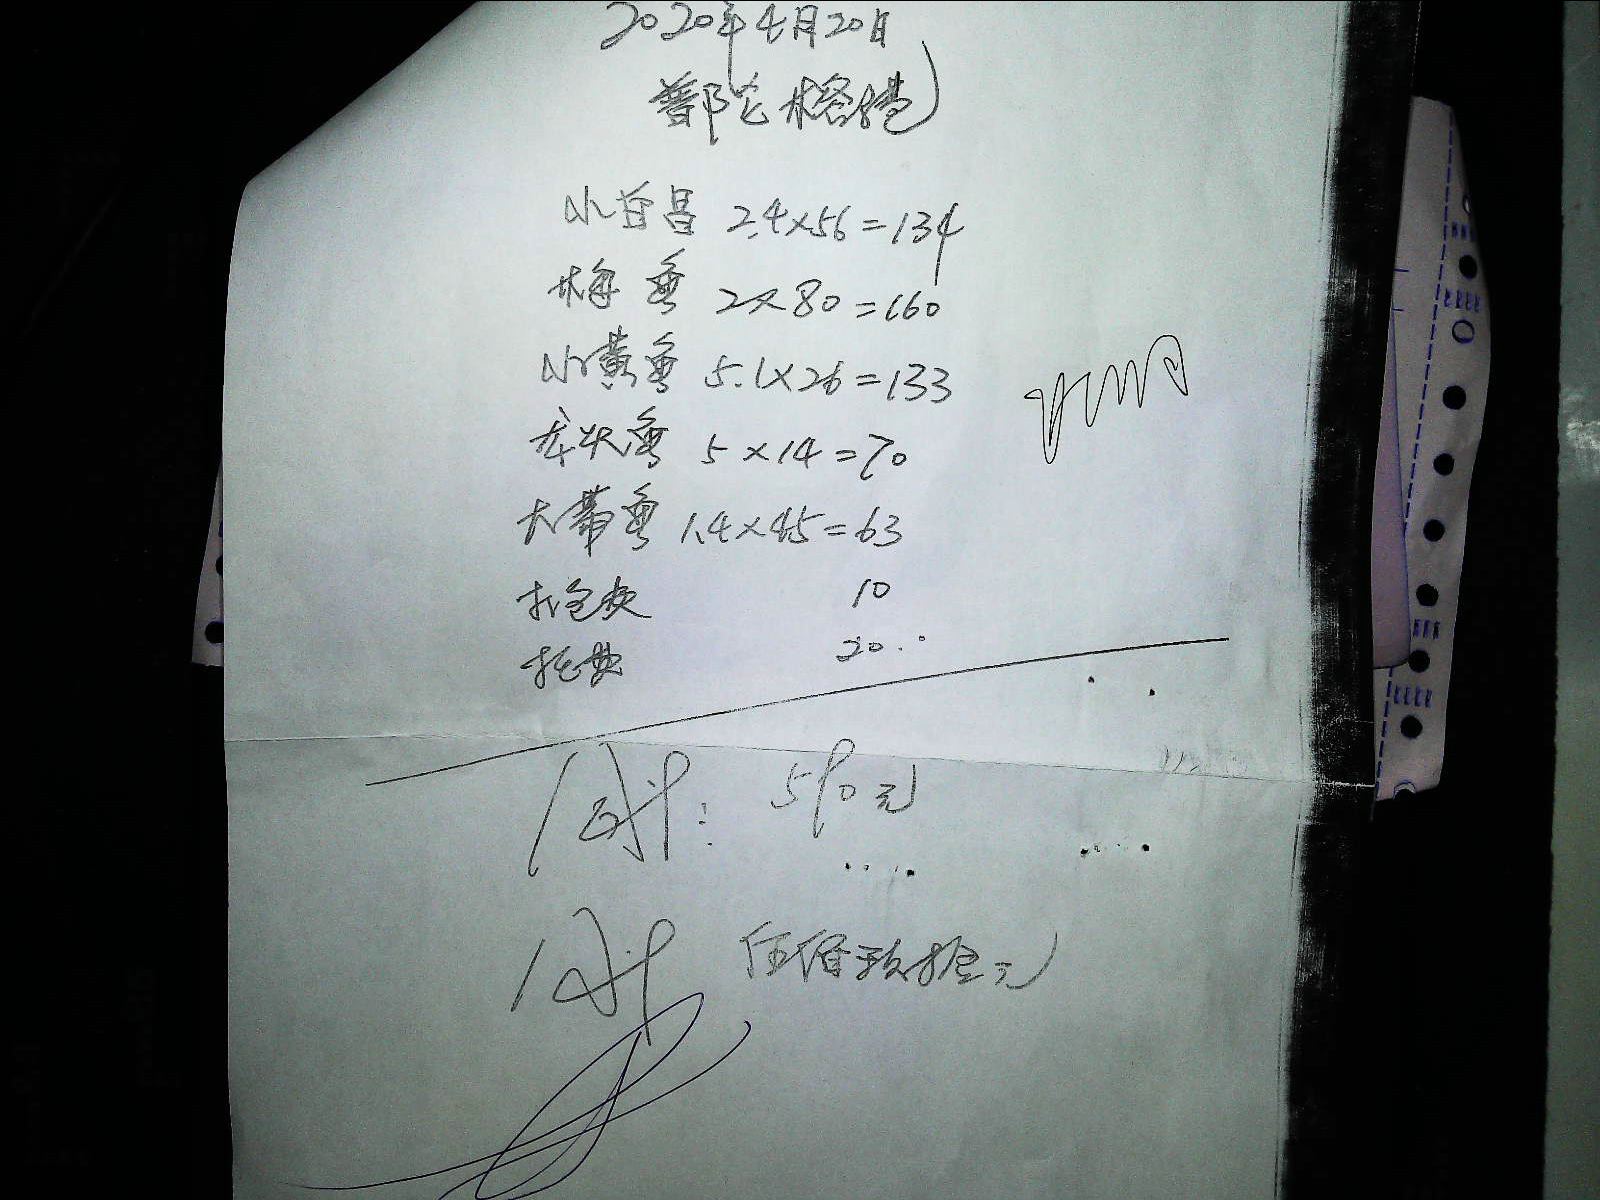 2020年4月20日
普陀榕港
小白昌 2.4×56=134
梅鱼 2×80=160
小黄鱼 5.1×26=133
龙头鱼 5×14=70
大带鱼 1.4×45=63
打包费 10
托费 20
合计: 590元
合计 伍佰玖拾元